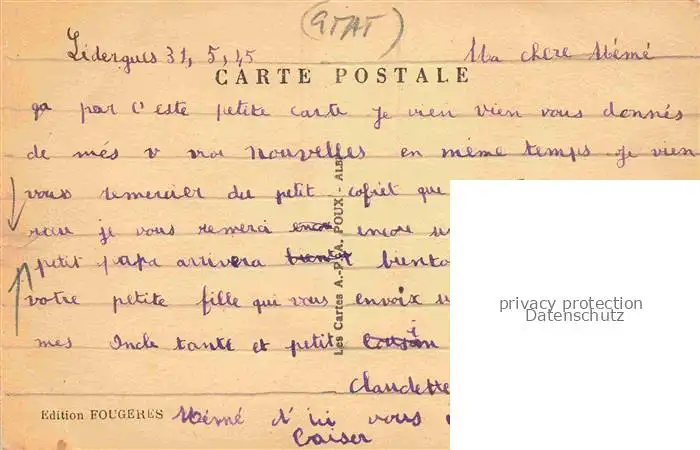 (GTAT)
Lidergues 31, 5, 45 Ma chere Mémé
CARTE POSTALE
ça par c'este petite carte je vien vien vous donnés
de més v vroi nouvelles en même temps je vien
vous remercier du petit cofret que
reçu je vous remerci encore encore
petit papa arrivera bientot
votre petite fille qui vous envoix
mes Oncle tante et petit cousin
Claudette
Edition FOUGERES Mémé d'ici vous
baiser
Les Cartes A.-P. A. POUX - ALBI
privacy protection
Datenschutz